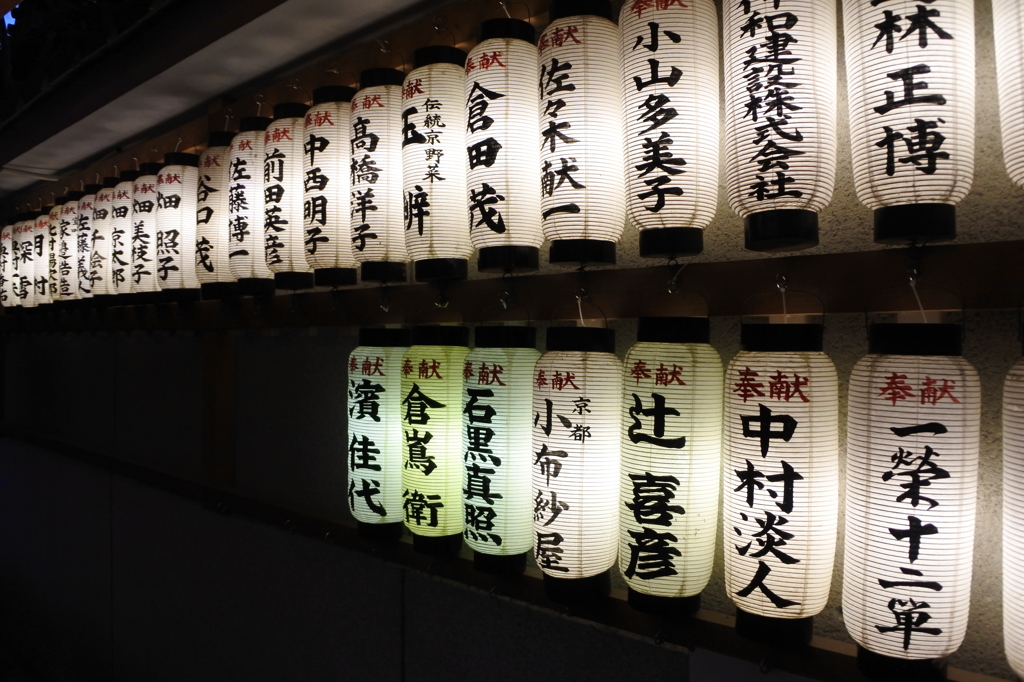 林正博
和建設株式会社
奉献 小山多美子
奉献 佐々木献一
奉献 倉田茂
献 伝統京野菜
奉献 高橋洋子
奉献 中西明子
奉献 前田英彦
奉献 佐藤博一
谷口茂
奉献 畑照子
畑美枝子
畑京太郎
奉献 一榮十二単
奉献 中村淡人
奉献 辻喜彦
奉献 京都 小布紗屋
奉献 石黒真照
奉献 倉嶌衛
奉献 濱佳代